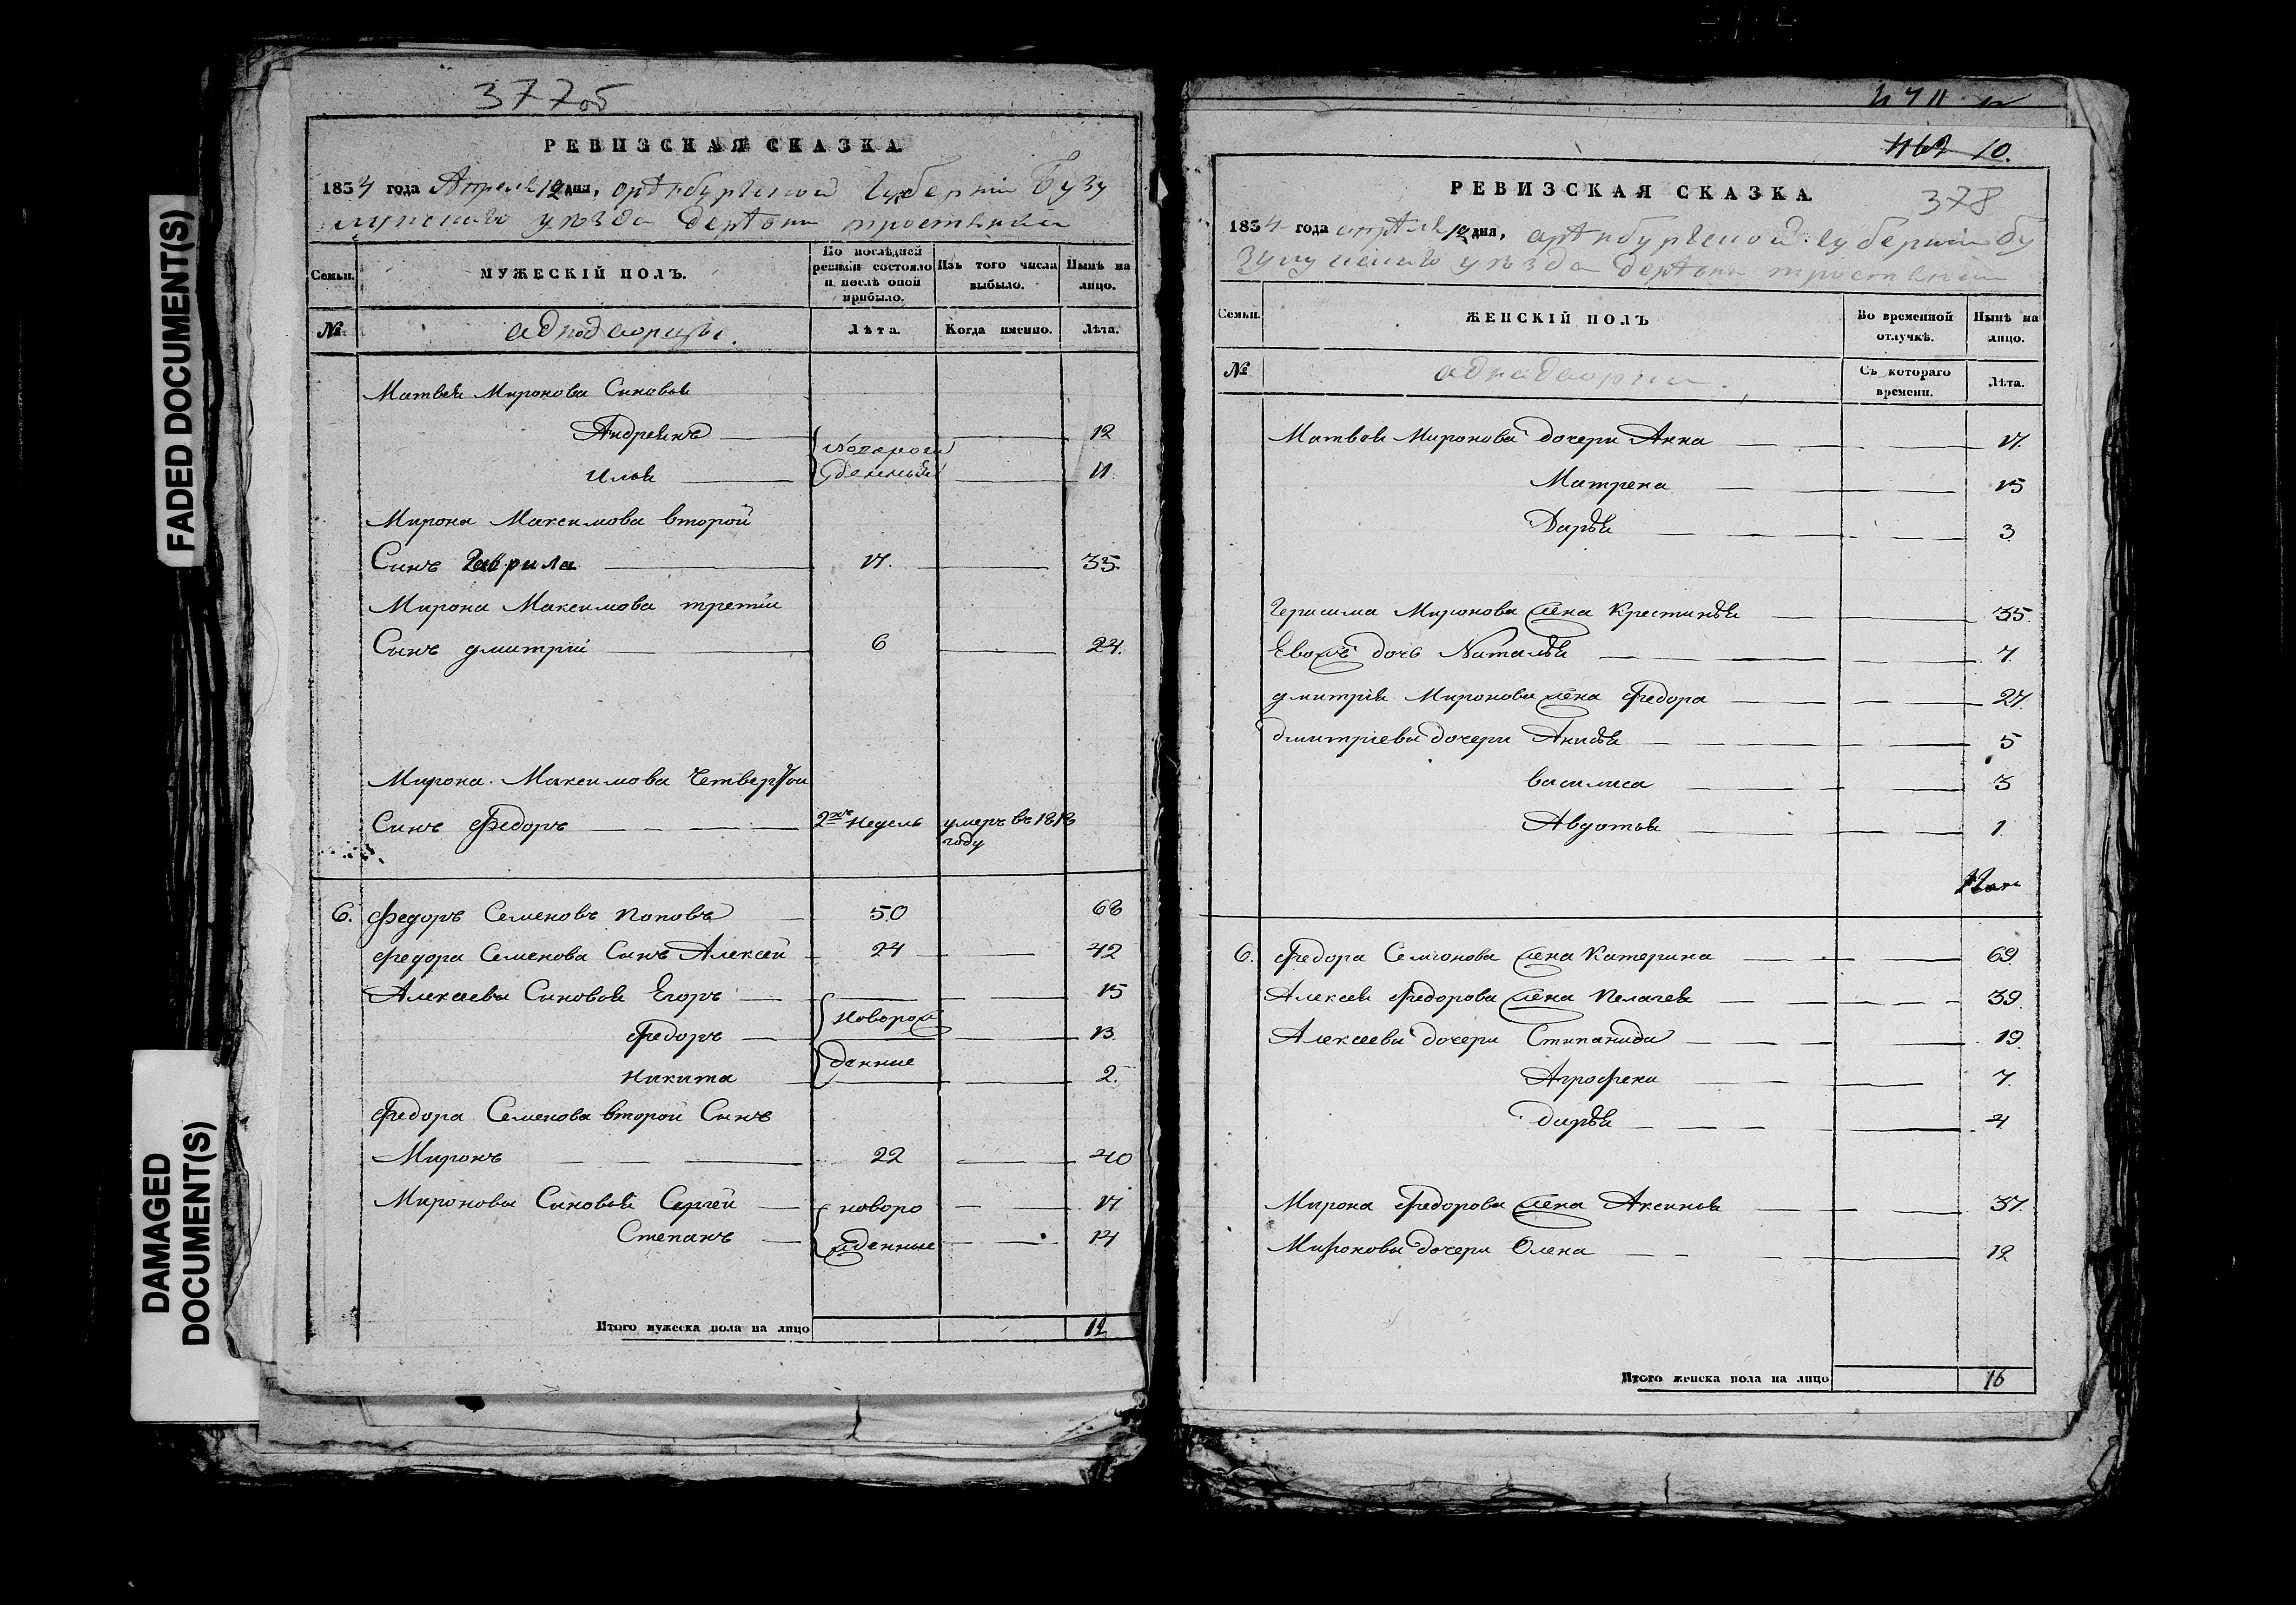 FADED DOCUMENT(S)
DAMAGED
DOCUMENT(S)
377об
РЕВИЗСКАЯ СКАЗКА
1834 года Апреля 12 дня, орѣнбургской губерніи Бузу
лукского уѣзда дерѣвни тростянки
Семьи.
МУЖЕСКІЙ ПОЛЪ.
По послѣдней ревизіи состояло и послѣ оной прибыло.
Изъ того числа выбыло.
Нынѣ на лицо.
№
аднодворцы.
Лѣта.
Когда именно.
Лѣта.
Матвея Миронова Сыновья
Андреянъ 12
Новорож
Илья 11.
денныи
Мирона Максимова второй
Сынъ Гаврила 17. 35.
Мирона Максимова третіи
Сынъ дмитрій 6 24.
Мирона Максимова Четвертои
Сынъ Федоръ 2хъ Недель умеръ въ 1818
году
6. Федоръ Семеновъ поповъ 50 68
Федора Семенова Сынъ Алексей 24 42
Алексеевы Сыновья Егоръ 15
Новорож
Федоръ 13.
денные
Никита 2.
Федора Семенова второй Сынъ
Миронъ 22 40
Мироновы Сыновья Сергей новоро 17
Степанъ жденные 14
Итого мужеска пола на лицо 12
10.
378
РЕВИЗСКАЯ СКАЗКА
1834 года апрѣля 12 дня, арѣнбургской губерніи бу
зулукского уѣзда дерѣвни тростянки
Семьи.
ЖЕНСКІЙ ПОЛЪ
Во временной отлучкѣ.
Нынѣ на лицо.
№
аднадворки.
Съ котораго времени.
Лѣта.
Матвея Миронова дочери Анна 17.
Матрена 15
Дарья 3
Герасима Миронова жена Крестинья 35.
Евожъ дочь Наталья 7.
дмитрія Миронова жена Федора 27.
дмитріевы дочери Анисья 5
василиса 3
Авдотья 1.
6. Федора Семионова жена Катерина 69.
Алексея Федорова жена Пелагея 39.
Алексеевы дочери Стипанида 19.
Агрофена 7.
дарья 4
Мирона Федорова жена Аксинья 37.
Мироновы дочери Олена 12
Итого женска пола на лицо 16